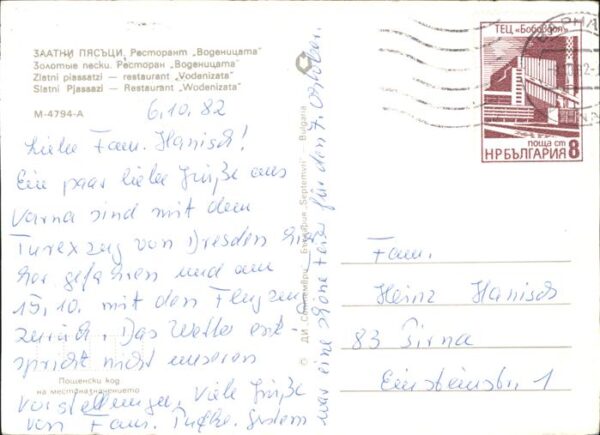 ЗЛАТНИ ПЯСЪЦИ. Ресторант „Воденицата"
Золотые пески. Ресторан „Воденицата"
Zlatni piassatzi — restaurant „Vodenizata"
Slatni Pjassazi — Restaurant „Wodenizata"
М-4794-А
6.10.82
Liebe Fam. Hanisch!
Ein paar liebe Grüße aus
Varna sind mit dem
Turexzug von Dresden hier
her gefahren und am
15.10. mit dem Flugzeug
zurück. Das Wetter ent-
spricht nicht unseren
Vorstellungen, Viele Grüße
von Fam. Gestern
war eine schöne Feier für den 7. Oktober.
Пощенски код
на местоназначението
© ДИ „Септември" — България „Septemvri" — Bulgaria
ТЕЦ „Бобовдол"
поща ст
НР БЪЛГАРИЯ 8
ВАРНА
Fam.
Heinz Hanisch
83 Pirna
Einsteinstr 1